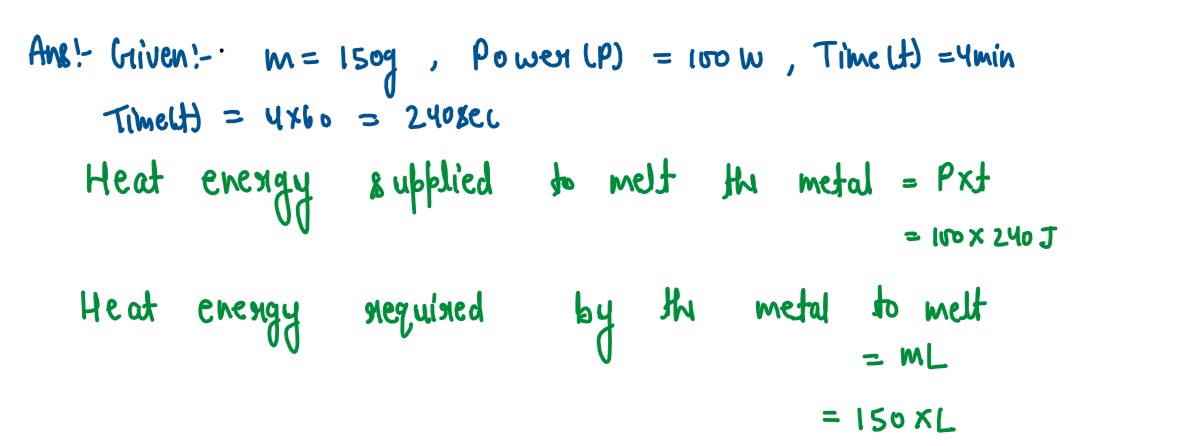 Ans:- Given:- m = 150g , Power (P) = 100 W , Time (t) = 4min
Time(t) = 4×60 = 240sec
Heat energy supplied to melt the metal = P×t
= 100 × 240 J
Heat energy required by the metal to melt
= mL
= 150 × L